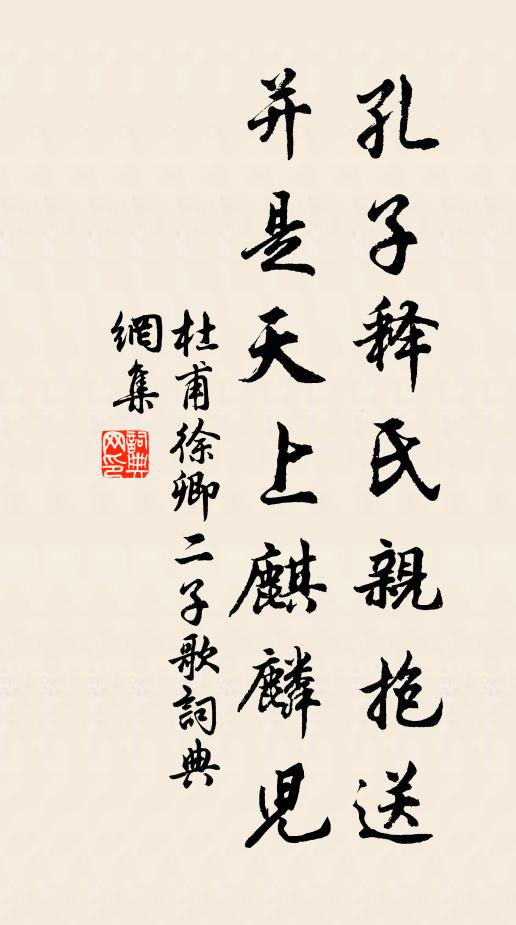 孔子释氏親抱送
并是天上麒麟兒
杜甫徐卿二子歌詞典
網集
詞典
网印